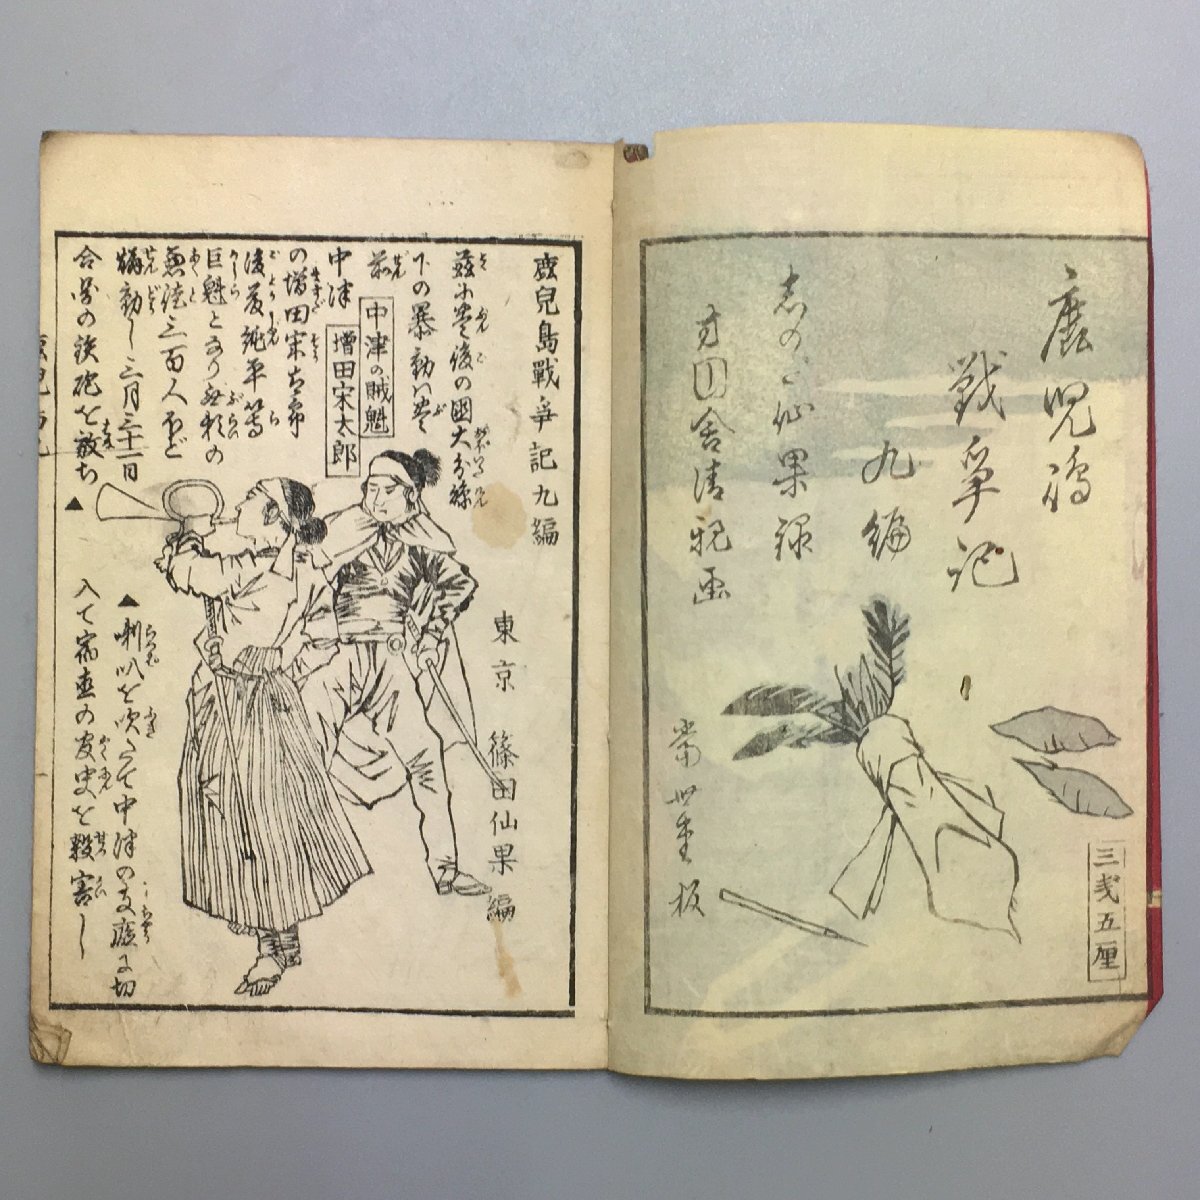 鹿児嶋
戦争記
九編
志のだ仙果録
梅堂板
三戔五厘
鹿兒島戰爭記九編
東京 篠田仙果編
茲に豊後の國大分縣
下の暴動は豊
前
中津
中津の賊魁
増田宋太郎
の増田宋太郎
後藤純平等
巨魁となり
無慮三百人ほど
煽動し三月三十一日
合図の鉄砲を放ち▲
▲喇叭を吹たてて中津の支廳に切
入て宿直の官吏を殺害し